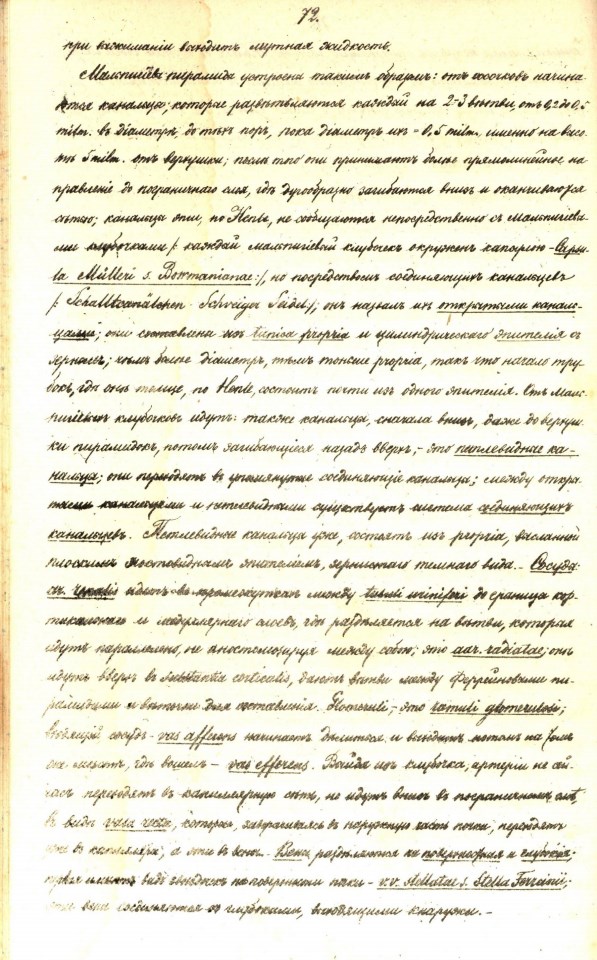 72.
при выжиманіи выходитъ мутная жидкость.
Мальпигіева пирамида устроена такимъ образомъ: отъ сосочковъ начина-
ются канальцы, которые развѣтвляются каждый на 2-3 вѣтви, отъ 0,2 до 0,5
milm. въ діаметрѣ, до тѣхъ поръ, пока діаметръ ихъ = 0,5 milm, именно на высо-
тѣ 5 milm. отъ верхушки; послѣ того они принимаютъ болѣе прямолинейное на-
правленіе до пограничнаго слоя, гдѣ дугообразно загибаются внизъ и оканчиваются
сѣтью; канальцы эти, по Henle, не сообщаются непосредственно съ мальпигіевы-
ми клубочками /: каждый мальпигіевой клубочекъ окруженъ капсулою - Capsu-
la Mülleri s. Bowmanianae :/, но посредствомъ соединяющихъ канальцевъ
/: Schaltcanälchen - Schweiger Seidel /; онъ назвалъ ихъ открытыми каналь-
цами; они составлены изъ tunica propria и цилиндрическаго эпителія съ
чѣмъ болѣе діаметръ, тѣмъ тоньше propria, такъ что начало тру-
бокъ, гдѣ онѣ толще, по Henle, состоитъ почти изъ одного эпителія. Отъ Маль-
пигіевыхъ клубочковъ идутъ также канальцы, сначала внизъ, даже до верхуш-
ки пирамидокъ, потомъ загибающіеся назадъ вверхъ, - это петлевидные ка-
нальцы; они переходятъ въ упомянутые соединяющіе канальцы; между откры-
тыми канальцами и петлевидными существуетъ система соединяющихъ
канальцевъ. Петлевидные канальцы уже, состоятъ изъ propria, высланной
плоскимъ мостовиднымъ эпителіемъ, зернистаго темнаго вида. - Сосуды
a. renalis идетъ въ промежуткахъ между tubuli uriniferi до границы кор-
тикальнаго и медулярнаго слоевъ, гдѣ раздѣляется на вѣтви, которыя
идутъ параллельно, не анастомозируя между собою; это aar. radiatae; онѣ
идутъ вверхъ въ substantia corticalis, даютъ вѣтви между Феррейновыми пи-
рамидами и вѣточки для составленія Glomeruli, - это ramuli glomerulosi;
входящій сосудъ - vas afferens начинаетъ дѣлиться и выходитъ потомъ на томъ
же мѣстѣ, гдѣ вошелъ - vas efferens. Выйдя изъ клубочка, артеріи не сей-
часъ переходятъ въ капиллярную сѣть, но идутъ внизъ въ пограничномъ слоѣ,
въ видѣ vasa recta, которые, заворачиваясь въ наружную часть почки, переходятъ
уже въ капилляры, а эти въ вены. Вены раздѣляются на поверхностныя и глубокія;
первыя имѣютъ видъ звѣздокъ на поверхности почки - v.v. stellatae s. Stella Ferreinii;
эти вены соединяются съ глубокими, выходящими кнаружи. -